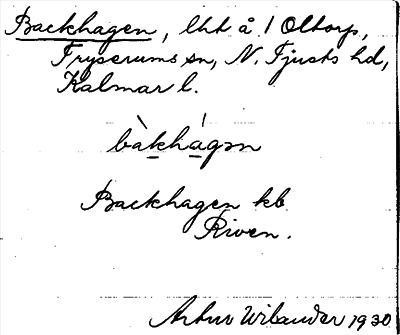 Backhagen, lht å 1 Oltorp,
Fryserums sn, N. Tjusts hd,
Kalmar l.
bàkhágən
Backhagen kb
Riven.
Artur Wilander 1930